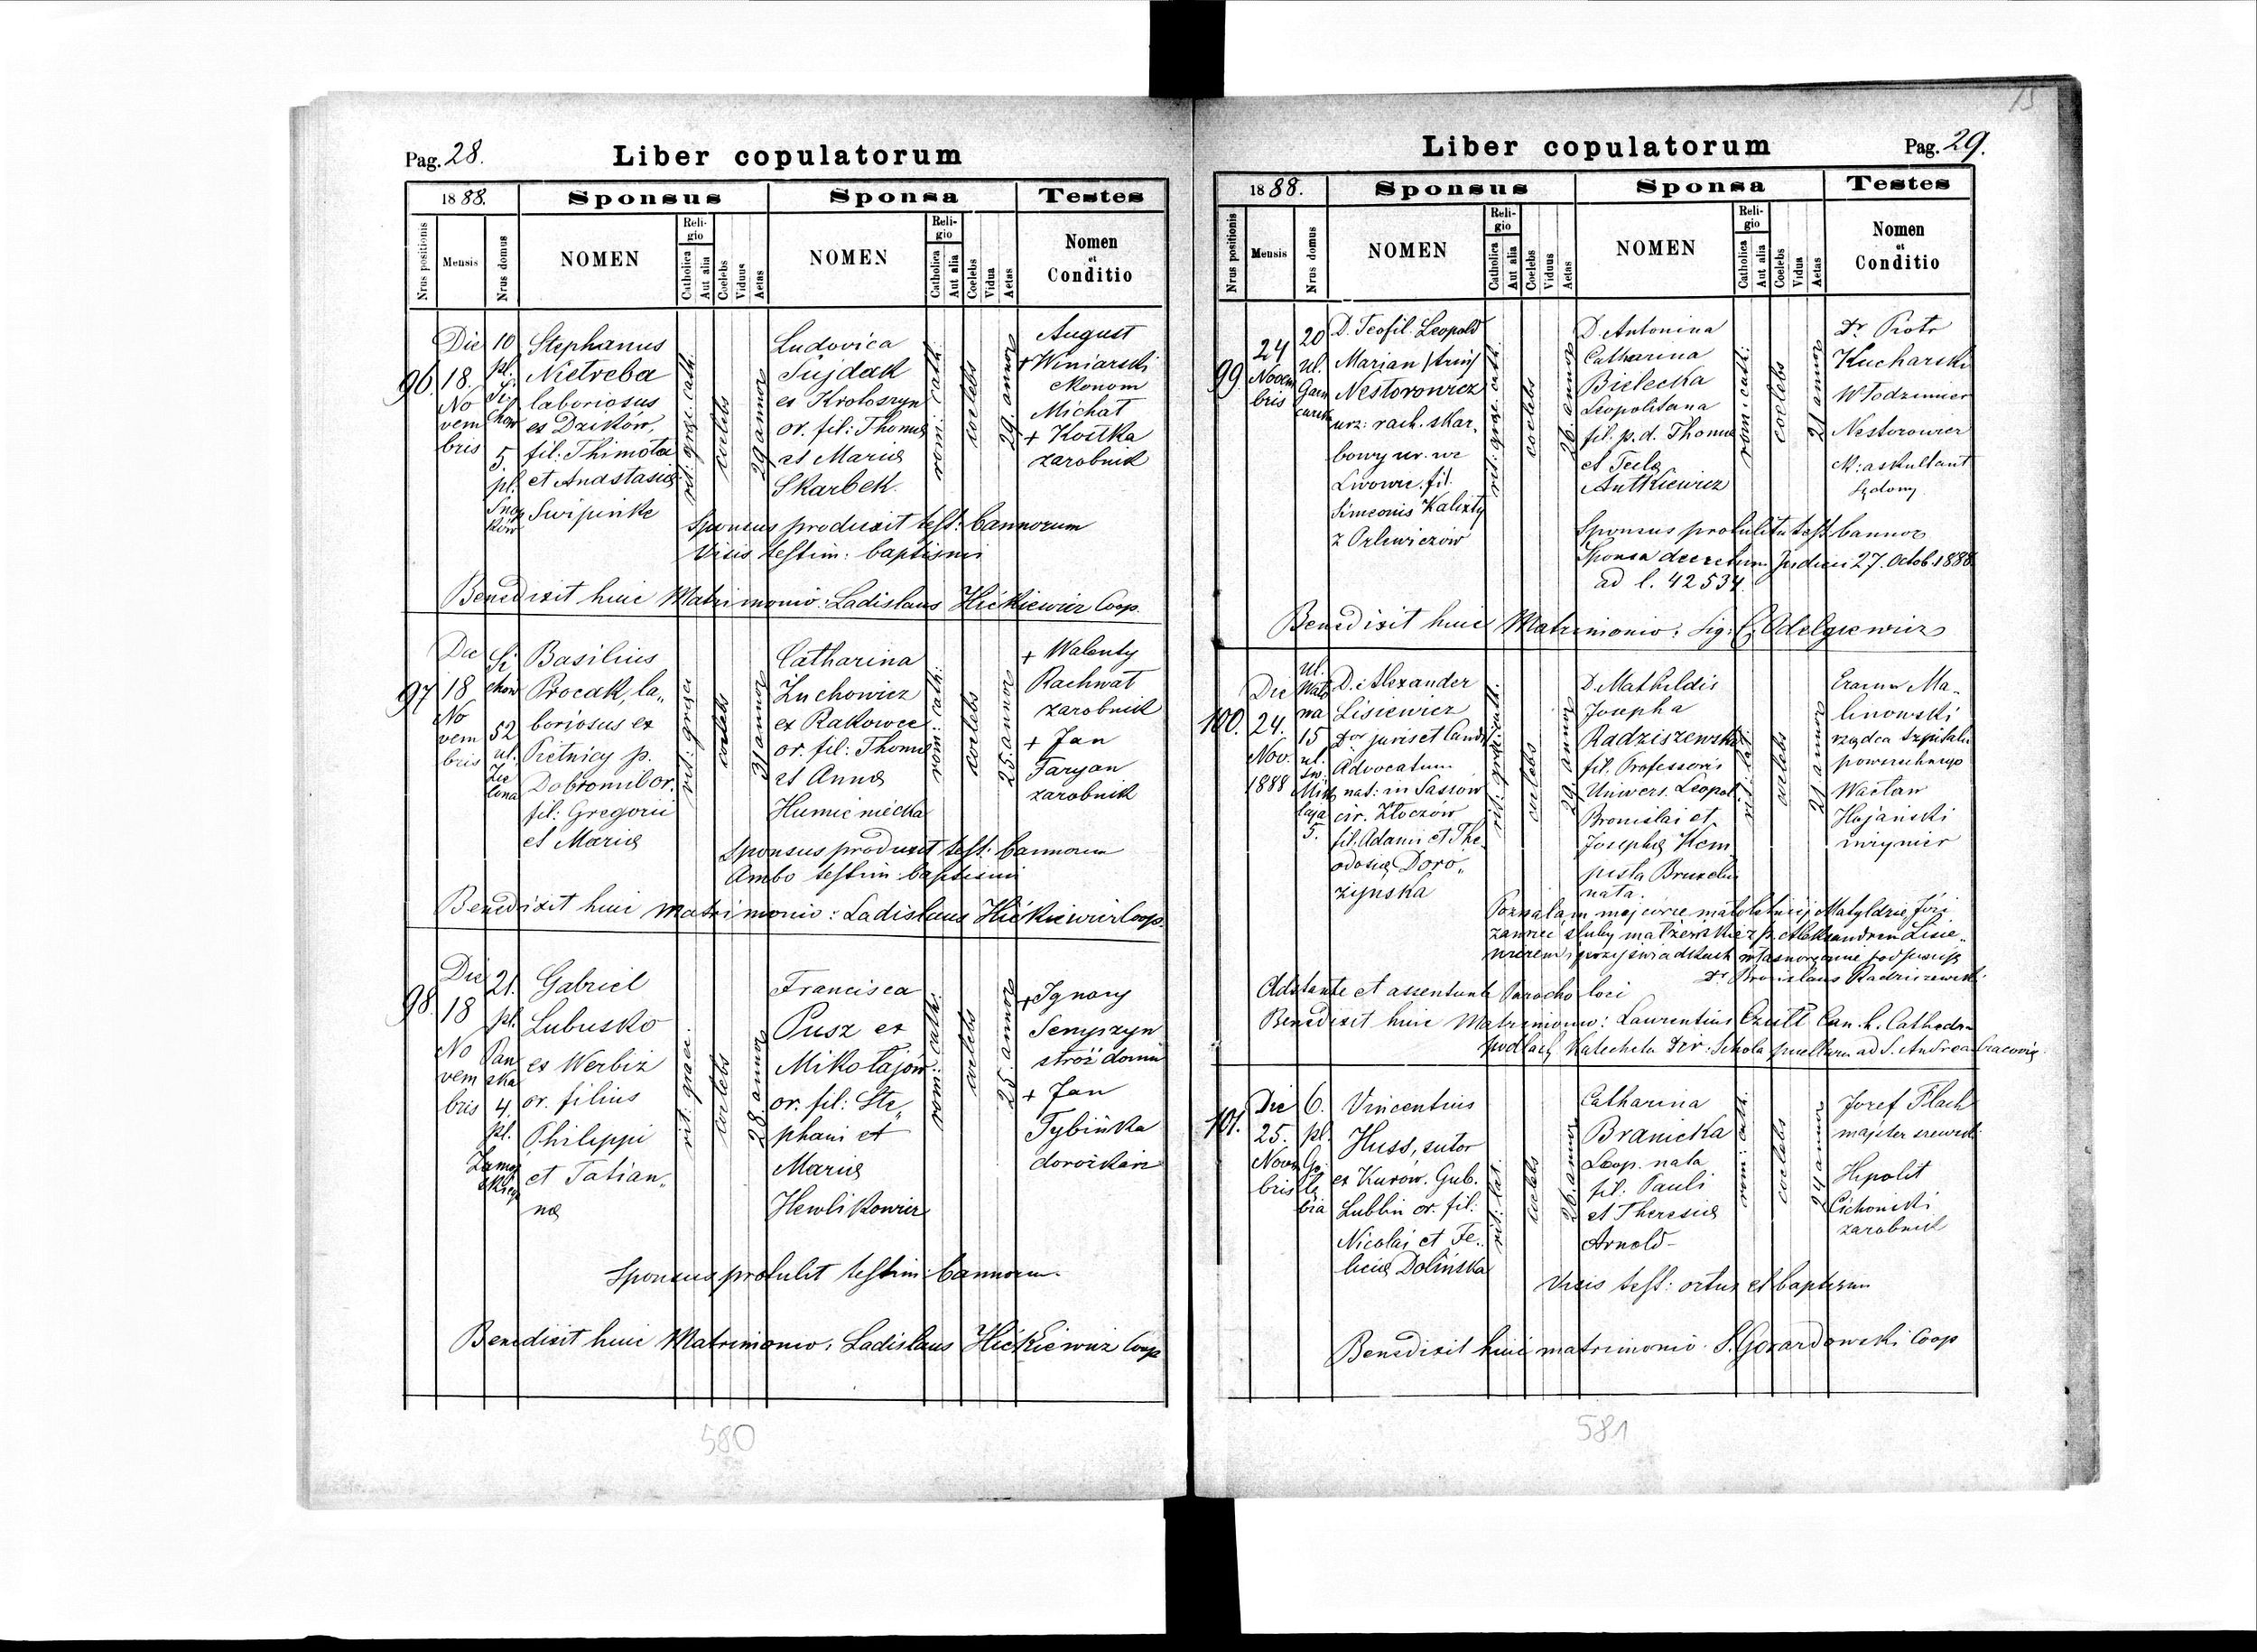 15
Pag. 28.
Liber copulatorum
1888.
Sponsus
Sponsa
Testes
Nrus positionis
Mensis
Nrus domus
NOMEN
Religio
Catholica
Aut alia
Coelebs
Viduus
Aetas
NOMEN
Religio
Catholica
Aut alia
Coelebs
Vidua
Aetas
Nomen
et
Conditio
96.
Die
18.
No
vem
bris
10
pl.
Si
chow
5.
pl.
Stephanus
Nietreba
laboriosus
ex Dzików,
fil: Thimotei
et Anastasiæ
Swipinke
rit: græc. cath.
coelebs
29 annor
Ludovica
Sujdak
ex Krotoszyn
or. fil: Thomæ
et Mariæ
Skarbek.
rom: cath:
coelebs
29. annor
August
+ Winiarski
ekonom
Michał
+ Kostka
zarobnik
Sponsus produxit test: bannorum
Visis testim: baptismi
Benedixit huic Matrimonio: Ladislaus Hickiewicz Coop.
97
Die
18
No
vem
bris
Si
chow
52
ul.
Zie
lona
Basilius
Procak, la„
boriosus ex
Pietnicy p.
Dobromil or.
fil: Gregorii
et Mariæ
rit: græci
coelebs
31 annor
Catharina
Żuchowicz
ex Rakowce
or. fil: Thomæ
et Annæ
Humieniecka
rom: cath:
coelebs
25. annor
+ Walenty
Rachwał
zarobnik
+ Jan
Taryan
zarobnik
Sponsus produxit test: bannorum
Ambo testim: baptismi
Benedixit huic matrimonio: Ladislaus Hickiewicz Coop.
98.
Die
18
No
vem
bris
21.
pl.
Pan
ska
4.
pl.
Gabriel
Lubusko
ex Werbiz
or. filius
Philippi
et Tatian„
næ
rit: græci.
coelebs
28 annor
Francisca
Pusz ex
Mikołajów
or. fil: Ste„
phani et
Mariæ
Hewlikowicz
rom: cath:
coelebs
25. annor
+ Ignacy
Senyszyn
stróż domu
+ Jan
Tybińka
dorożkarz
Sponsus protulit testim: bannorum.
Benedixit huic Matrimonio: Ladislaus Hickiewicz Coop
580
Liber copulatorum
Pag. 29.
1888.
Sponsus
Sponsa
Testes
Nrus positionis
Mensis
Nrus domus
NOMEN
Religio
Catholica
Aut alia
Coelebs
Viduus
Aetas
NOMEN
Religio
Catholica
Aut alia
Coelebs
Vidua
Aetas
Nomen
et
Conditio
99
24
Novem
bris
20
ul.
D. Teofil Leopold
Marian
Nestorowicz
urz: rach. skar.
bowy
Lwowie. fil.
Simeonis Kalixty
z Orlewiczów
rit: græc. cath.
coelebs
26. annor
D. Antonina
Catharina
Bielecka
Leopolitana
fil. p. d. Thomæ
et Teclæ
Antkiewicz
rom: cath:
coelebs
21 annor
Dr. Piotr
Kucharski
Włodzimierz
Nestorowicz
askultant
sądowy
Sponsus protulit test. bannor
Sponsa decretum Judicii 27. Octob. 1888
ad l. 42534.
Benedixit huic Matrimonio:
100.
Die
24.
Nov.
1888
ul.
Wało
na
15
ul.
św.
Miko
łaja
5.
D. Alexander
Lisiewicz
Dor juris et Cand.
Advocatum
nat: in Sassow
cir. Złoczów
fil. Adami et The
odosiæ Doro„
żynska
coelebs
29 annor
D. Mathildis
Josepha
Radziszewska
fil. Professoris
Univers. Leopol.
Bronislai et
Josephæ Kem
pista Bruxelis
nata.
coelebs
21 annor
Erazm Ma„
linowski
rządca szpitalu
powszechnego
Wacław
Hojański
inżynier
Pozwalam mej córce małoletniej Matyldzie Józi
zawrzeć śluby małżeńskie z p. Aleksandrem Lisie„
wiczem i przy świadkach własnoręcznie podpisuję
Dr Bronislaus Radziszewski
Adstante et assentiente Parocho loci
Benedixit huic Matrimonio: Laurentius Can. h. Cathedr.
Katecheta Schola puellarum ad S. Andream Cracoviæ
101.
Die
25.
Novem
bris
6.
pl.
Go
łę
bia
Vincentius
Huss, sutor
ex Kurów. Gub.
Lublin or. fil:
Nicolai et Fe„
liciæ Dolińska
rit: lat.
coelebs
26. annor
Catharina
Branicka
Leop. nata
fil: Pauli
et Theresiæ
Arnold
rom: cath.
coelebs
24 annor
Jozef Flach
majster szewski
Hipolit
Cichonski
zarobnik
Visis test: ortus et baptism
Benedixit huic matrimonio S. Gorardowski Coop
581